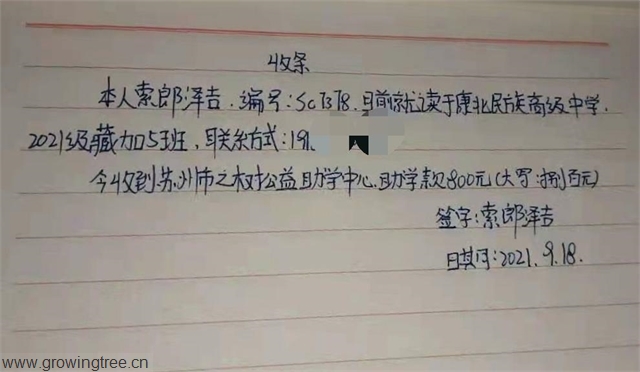 收条
本人索郎泽吉.编号:ScTB78.目前就读于康北民族高级中学.
2021级藏加5班,联系方式:191
今收到苏州市之树公益助学中心.助学款800元(大写:捌百元)
签字:索郎泽吉
日期:2021.9.18.
www.growingtree.cn